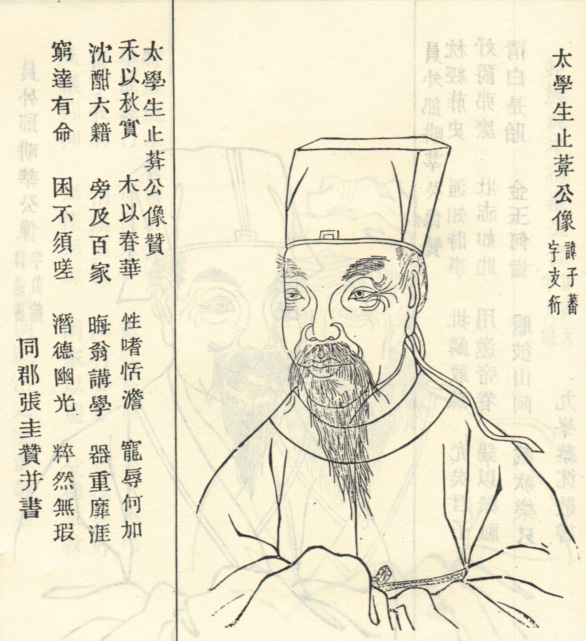 太學生止葊公像 諱子蕃
字支衍
太學生止葊公像贊
禾以秋實 木以春華 性嗜恬澹 寵辱何加
沈酣六籍 旁及百家 晦翁講學 器重靡涯
窮達有命 困不須嗟 潛德幽光 粹然無瑕
同郡張圭贊并書